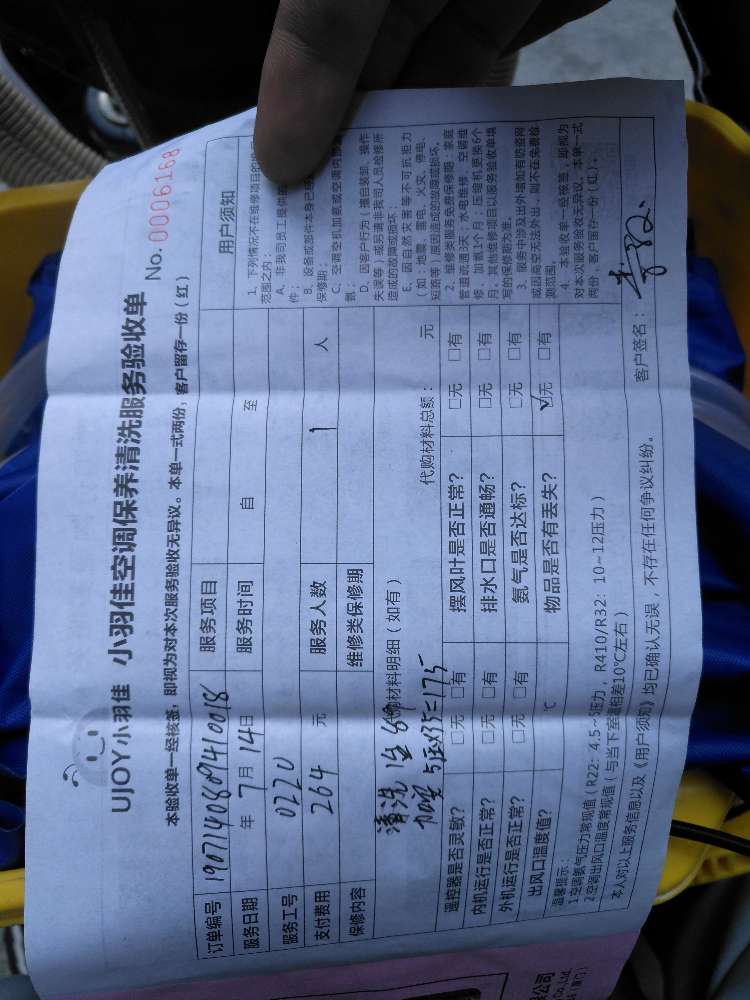 UJOY小羽佳 小羽佳空调保养清洗服务验收单
No. 0006168
本验收单一经核签，即视为对本次服务验收无异议。本单一式两份，客户留存一份（红）
订单编号 190714088941001８ 服务项目
服务日期 年 7月 14日 服务时间 自 至
服务工号 0220
支付费用 264 元 服务人数 1 人
保修内容 维修类保修期
代购材料明细（如有） 代购材料总额： 元
清洗
5压×35=175
遥控器是否灵敏? □无 □有 摆风叶是否正常? □无 □有
内机运行是否正常? □无 □有 排水口是否通畅? □无 □有
外机运行是否正常? □无 □有 氨气是否达标? □无 □有
出风口温度值? ℃ 物品是否有丢失? ☑无 □有
温馨提示：
1.空调氨气压力常规值（R22：4.5~5压力，R410/R32：10~12压力）
2.空调出风口温度常规值（与当下室温相差10℃左右）
本人对以上服务信息以及《用户须知》均已确认无误，不存在任何争议纠纷。
客户签名：
用户须知
1、下列情况不在维修项目的
范围之内：
A、非我司员工提供的
件；
B、设备或部件本身已
保修期；
C、空调空机加氨或空调内
氨；
D、因客户行为（擅自装卸、操作
失误等）或另请非我司人员检修所
造成的故障或损坏；
E、因自然灾害等不可抗拒力
（如：地震、雷电、火灾、停电、
短路等）原因造成的故障或损坏。
2、维修类服务免费保修期：家庭
管道疏通3天；水电维修、空调维
修、加氨1个月；压缩机更换6个
月。其他维修项目以服务验收单填
写的保修期为准。
3、服务中涉及出外墙如有防盗网
或因高空无法外出，则不在免费检
测范围。
4、本验收单一经核签，即视为
对本次服务验收无异议，本单一式
两份，客户留存一份（红）。
公司
Co.,Ltd.